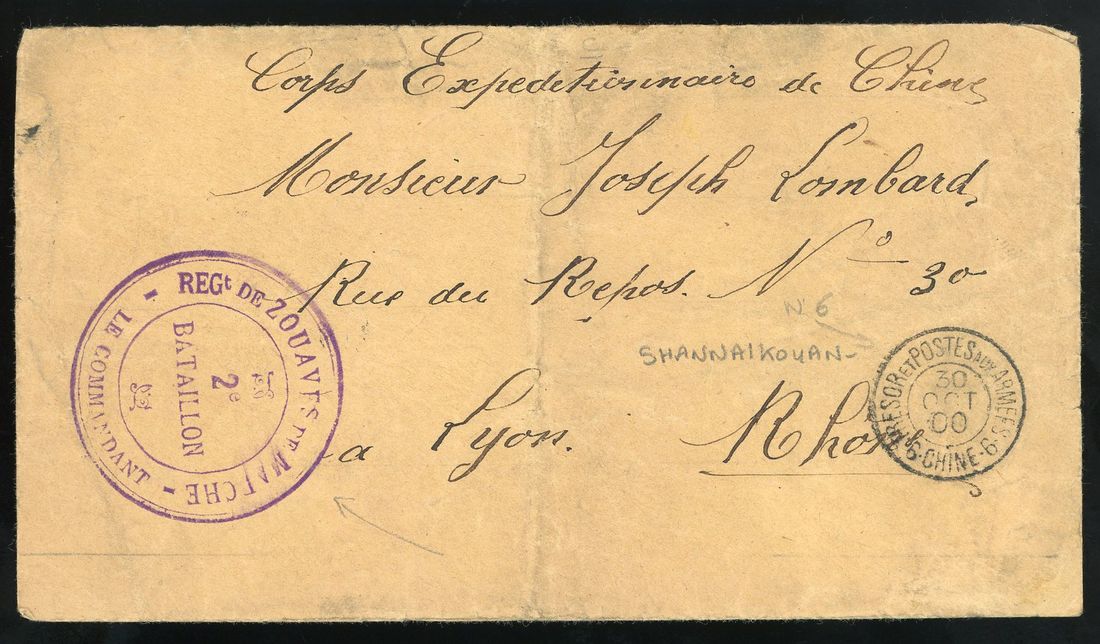 Corps Expeditionnaire de Chine
Monsieur Joseph Lombard
Rue du Repos. N° 30
a Lyon. Rhone
N 6
SHANNAIKOUAN-
REGt DE ZOUAVES DE MARCHE
- LE COMMANDANT -
2e
BATAILLON
TRESOR ET POSTES AUX ARMEES
6. CHINE. 6
30
OCT
00